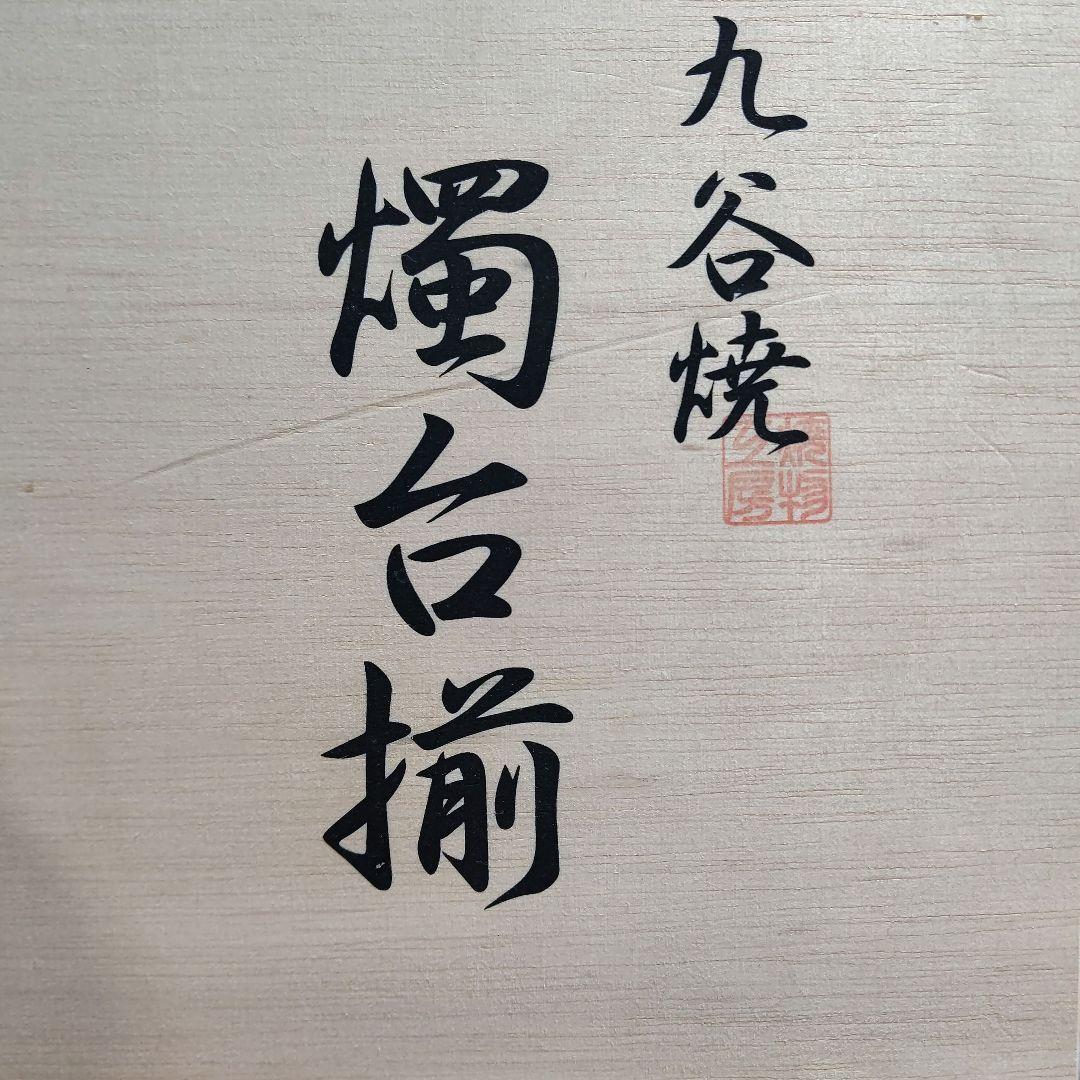 九谷焼
燭台揃